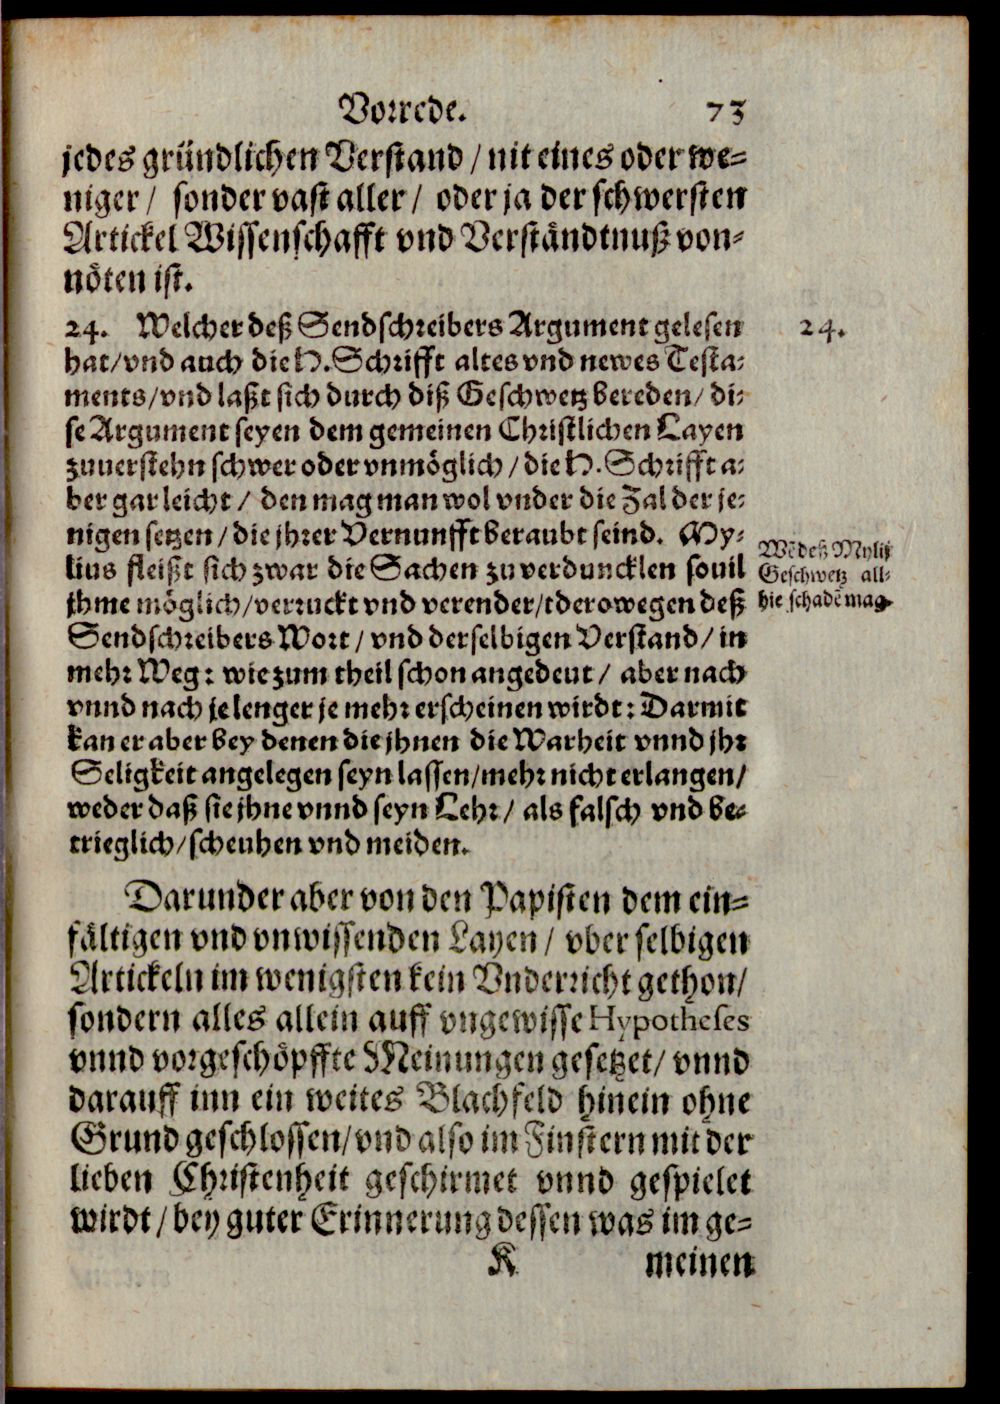 Vorrede. 73
jedes gründlichen Verstand / nit eines oder we-
niger / sonder vast aller / oder ja der schwersten
Artickel Wissenschafft vnd Verständtnuß von-
nöten ist.
24. Welcher deß Sendschreibers Argument gelesen
24.
hat/vnd auch die H. Schrifft altes vnd newes Testa-
ments/vnd laßt sich durch diß Geschwetz bereden/ di-
se Argument seyen dem gemeinen Christlichen Layen
zuuerstehn schwer oder vnmöglich / die H. Schrifft a-
ber gar leicht / den mag man wol vnder die Zal der je-
nigen setzen / die jhrer Vernunfft beraubt seind. My-
lius fleißt sich zwar die Sachen zu verduncklen souil
jhme möglich/verruckt vnd verender/tderowegen deß
Sendschreibers Wort / vnd derselbigen Verstand/ in
mehr Weg: wie zum theil schon angedeut / aber nach
vnnd nach je lenger je mehr erscheinen wirdt: Darmit
kan er aber bey denen die jhnen die Warheit vnnd jhr
Seligkeit angelegen seyn lassen/mehr nicht erlangen/
weder daß sie jhne vnnd seyn Lehr / als falsch vnd be-
trieglich/scheuhen vnd meiden.
Wẽ deß Mylij
Geschwetz all-
hie schadẽ mag.
Darunder aber von den Papisten dem ein-
fältigen vnd vnwissenden Layen / vber selbigen
Artickeln im wenigsten kein Vnderricht gethon/
sondern alles allein auff vngewisse Hypotheses
vnnd vorgeschöpffte Meinungen gesetzet/ vnnd
darauff inn ein weites Blachfeld hinein ohne
Grund geschlossen/vnd also im Finstern mit der
lieben Christenheit geschirmet vnnd gespielet
wirdt / bey guter Erinnerung dessen was im ge-
K meinen